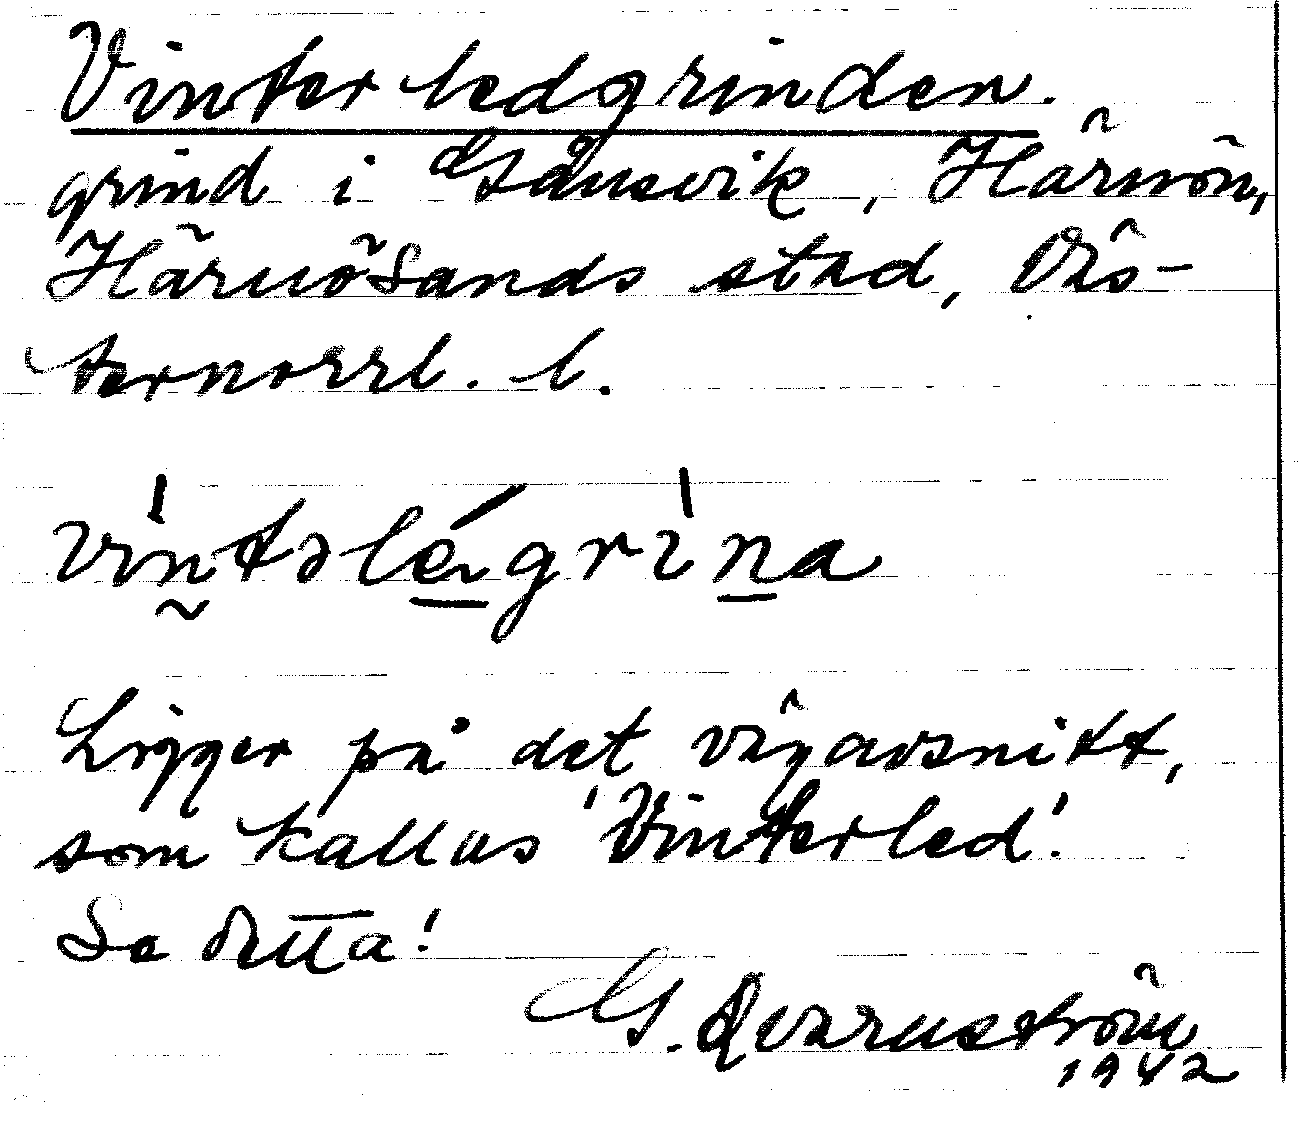 Vinterledgrinden.
grind i Gånsvik, Härnön,
Härnösands stad, Väs-
ternorrl. l.
vintəlegrina
Ligger på det vägavsnitt,
som kallas 'Vinterled'.
Se detta!
G. Qvarnström
1942